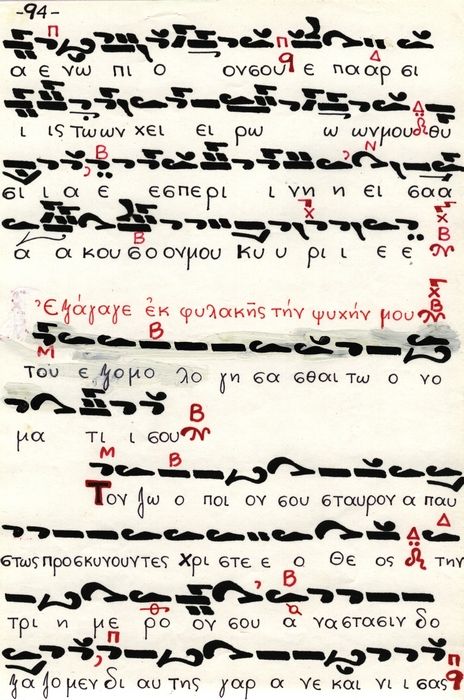 -94-
α ε νω πι ο ονσου ε πα αρ σι
ι ις τω ων χει ει ρω ω ων μου θυ
σι ι α ε εσπερι ι νη η εισαα
α α κου σο ονμου Κυ υ ρι ι ε ε
Ἐξάγαγε ἐκ φυλακῆς τήν ψυχήν μου
του εξομο λο γη σα σθαι τω ο νο
μα τι ι σου
Τον ζω ο ποι ον σου σταυρον α παυ
στως προσκυνουντες Χρι στε ε ο Θε ος την
τρι η με ρο ον σου α να στασιν δο
ξα ζο μεν δι αυ της γαρ α νε και νι ι σας